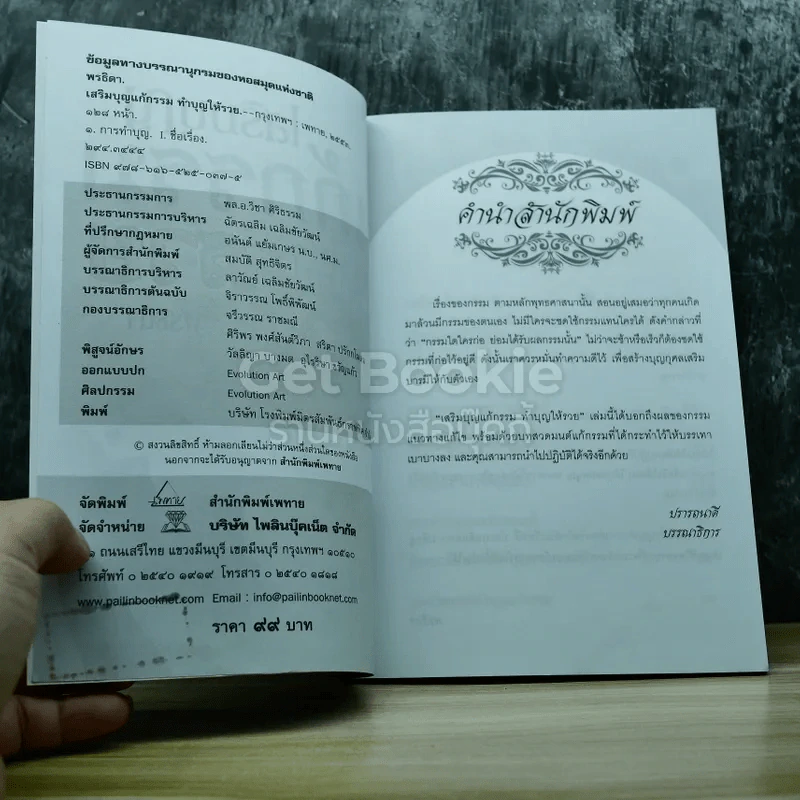 ข้อมูลทางบรรณานุกรมของหอสมุดแห่งชาติ
พรธิดา.
เสริมบุญแก้กรรม ทำบุญให้รวย.--กรุงเทพฯ : เพทาย, ๒๕๕๓.
๑๒๘ หน้า.
๑. การทำบุญ. I. ชื่อเรื่อง.
๒๙๔.๓๔๔๔
ISBN ๙๗๘-๖๑๖-๕๒๕-๐๓๗-๕
ประธานกรรมการ พล.อ.วิชา ศิริธรรม
ประธานกรรมการบริหาร ฉัตรเฉลิม เฉลิมชัยวัฒน์
ที่ปรึกษากฎหมาย อนันต์ แย้มเกษร น.บ., น.ศ.ม.
ผู้จัดการสำนักพิมพ์ สมบัติ สุทธิจิตร
บรรณาธิการบริหาร ลาวัณย์ เฉลิมชัยวัฒน์
บรรณาธิการต้นฉบับ จิราวรรณ โพธิ์พิพัฒน์
กองบรรณาธิการ จรีวรรณ ราชมณี
ศิริพร พงศ์สันต์วิภา สริตา
พิสูจน์อักษร วัลลิญา บางมด
ออกแบบปก Evolution Art
ศิลปกรรม Evolution Art
พิมพ์ บริษัท โรงพิมพ์มิตรสัมพันธ์กราฟฟิค
© สงวนลิขสิทธิ์ ห้ามลอกเลียนไม่ว่าส่วนหนึ่งส่วนใดของหนังสือ
นอกจากจะได้รับอนุญาตจาก สำนักพิมพ์เพทาย
จัดพิมพ์ เพทาย สำนักพิมพ์เพทาย
จัดจำหน่าย บริษัท ไพลินบุ๊คเน็ต จำกัด
ถนนเสรีไทย แขวงมีนบุรี เขตมีนบุรี กรุงเทพฯ ๑๐๕๑๐
โทรศัพท์ ๐ ๒๕๔๐ ๑๙๑๙ โทรสาร ๐ ๒๕๔๐ ๑๘๑๘
www.pailinbooknet.com Email : info@pailinbooknet.com
ราคา ๙๙ บาท
คำนำสำนักพิมพ์
เรื่องของกรรม ตามหลักพุทธศาสนานั้น สอนอยู่เสมอว่าทุกคนเกิด
มาล้วนมีกรรมของตนเอง ไม่มีใครจะชดใช้กรรมแทนใครได้ ดังคำกล่าวที่
ว่า "กรรมใดใครก่อ ย่อมได้รับผลกรรมนั้น" ไม่ว่าจะช้าหรือเร็วก็ต้องชดใช้
กรรมที่ก่อไว้อยู่ดี ดังนั้นเราควรหมั่นทำความดีไว้ เพื่อสร้างบุญกุศลเสริม
บารมีให้กับตัวเอง
"เสริมบุญแก้กรรม ทำบุญให้รวย" เล่มนี้ได้บอกถึงผลของกรรม
แนวทางแก้ไข พร้อมด้วยบทสวดมนต์แก้กรรมที่ได้กระทำไว้ให้บรรเทา
เบาบางลง และคุณสามารถนำไปปฏิบัติได้จริงอีกด้วย
ปรารถนาดี
บรรณาธิการ
Get Bookie
ร้านหนังสือเก็ตบุ๊คกี้